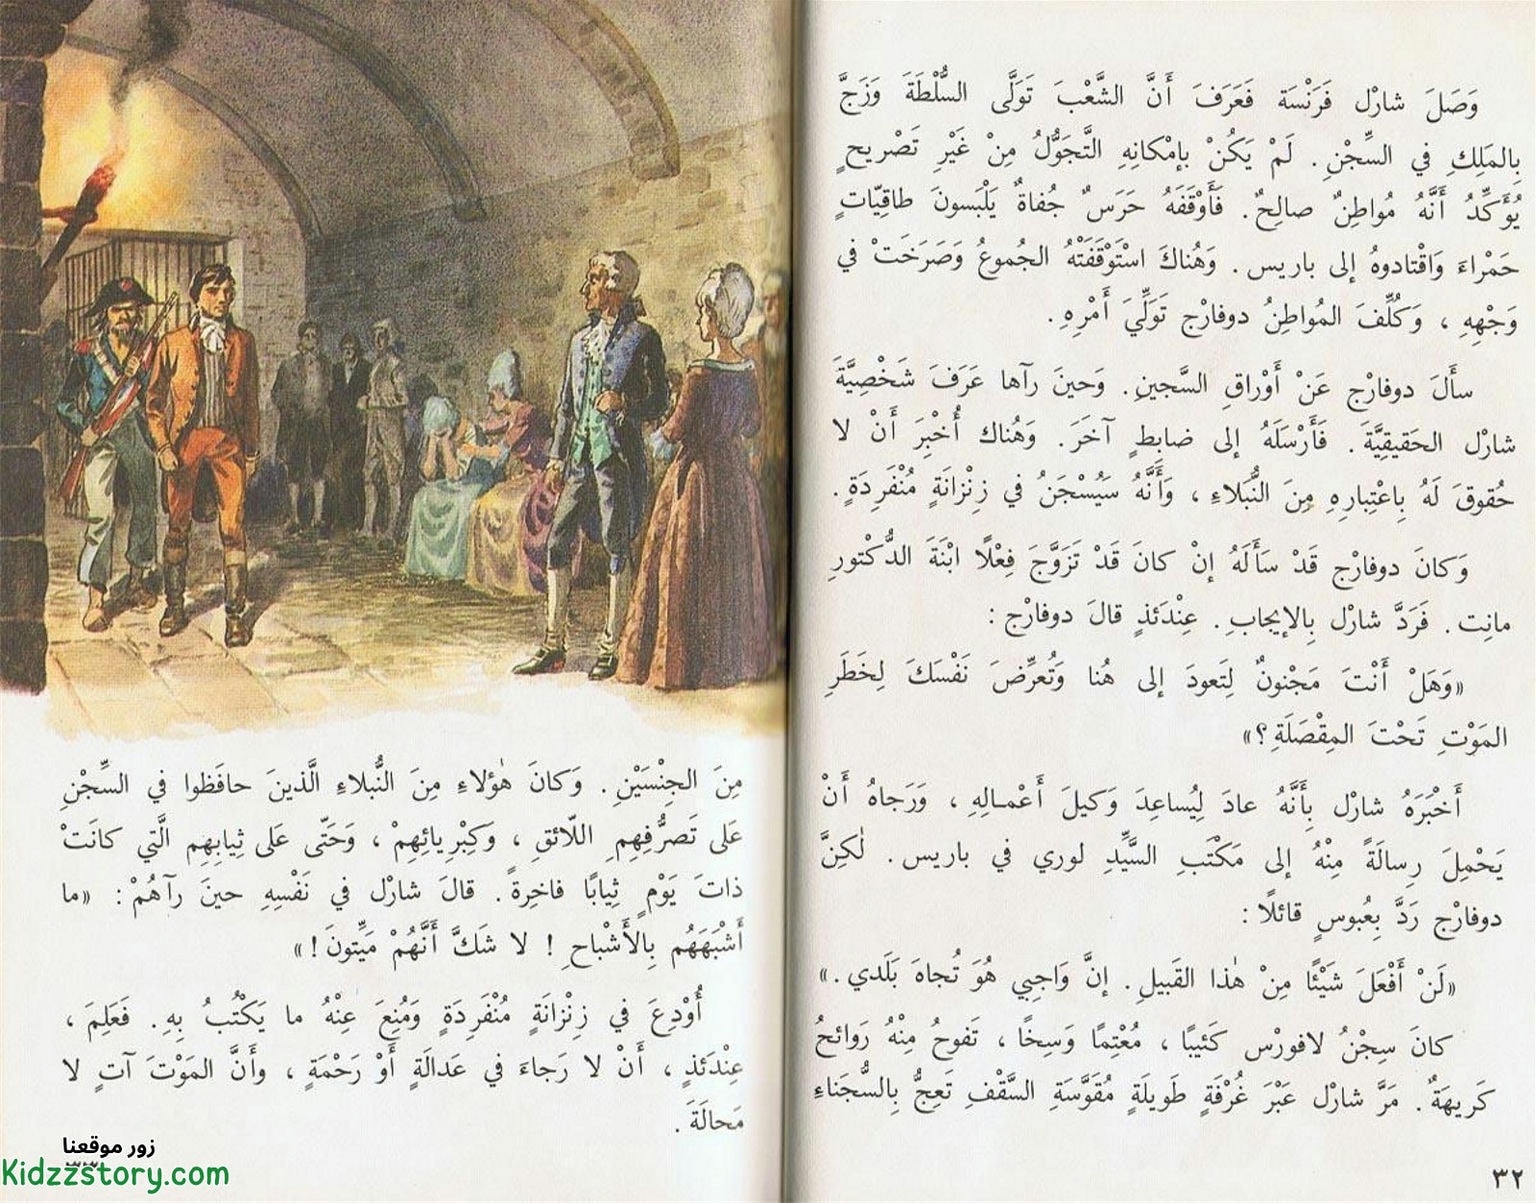 وَصَلَ شارْل فَرَنْسَة فَعَرَفَ أَنَّ الشَّعْبَ تَوَلَّى السُّلْطَةَ وَزَجَّ
بِالمَلِكِ في السِّجْنِ. لَمْ يَكُنْ بِإمْكانِهِ التَّجَوُّلُ مِنْ غَيْرِ تَصْريحٍ
يُؤَكِّدُ أَنَّهُ مُواطِنٌ صالِحٌ. فَأَوْقَفَهُ حَرَسٌ جُفاةٌ يَلْبَسونَ طاقِيّاتٍ
حَمْراءَ وَاقْتادوهُ إلى باريس. وَهُناكَ اسْتَوْقَفَتْهُ الجُموعُ وَصَرَخَتْ في
وَجْهِهِ ، وَكُلِّفَ المُواطِنُ دوفارْج تَوَلِّيَ أَمْرِهِ.
سأَلَ دوفارْج عَنْ أَوْراقِ السَّجينِ. وَحينَ رآها عَرَفَ شَخْصِيَّةَ
شارْل الحَقيقِيَّةَ. فَأَرْسَلَهُ إلى ضابِطٍ آخَرَ. وَهُناك أُخْبِرَ أَنْ لا
حُقوقَ لَهُ بِاعْتِبارِهِ مِنَ النُّبَلاءِ ، وَأَنَّهُ سَيُسْجَنُ في زِنْزانَةٍ مُنْفَرِدَةٍ.
وَكانَ دوفارْج قَدْ سَأَلَهُ إنْ كانَ قَدْ تَزَوَّجَ فِعْلًا ابْنَةَ الدُّكْتورِ
مانِت. فَرَدَّ شارْل بِالإيجابِ. عِنْدَئذٍ قالَ دوفارْج :
«وَهَلْ أَنْتَ مَجْنونٌ لِتَعودَ إلى هُنا وَتُعرِّضَ نَفْسَكَ لِخَطَرِ
المَوْتِ تَحْتَ المِقْصَلَةِ؟»
أَخْبَرَهُ شارْل بِأَنَّهُ عادَ لِيُساعِدَ وَكيلَ أَعْمـالِهِ ، وَرَجاهُ أَنْ
يَحْمِلَ رِسالَةً مِنْهُ إلى مَكْتَبِ السَّيِّدِ لوري في باريس. لٰكِنَّ
دوفارْج رَدَّ بِعُبوسٍ قائلًا :
«لَنْ أَفْعَلَ شَيْئًا مِنْ هٰذا القَبيلِ. إنَّ وَاجِبِي هُوَ تُجاهَ بَلَدي.»
كانَ سِجْنُ لافورْس كَئيبًا ، مُعْتِمًا وَسِخًا ، تَفوحُ مِنْهُ رَوائحُ
كَريهَةٌ. مَرَّ شارْل عَبْرَ غُرْفَةٍ طَويلَةٍ مُقَوَّسَةِ السَّقْفِ تَعِجُّ بِالسُّجَناءِ
٣٢
مِنَ الجِنْسَيْنِ. وَكانَ هٰؤلاءِ مِنَ النُّبلاءِ الَّذينَ حافَظوا في السِّجْنِ
عَلى تَصرُّفِهِمِ اللّائقِ ، وَكِبْرِيائِهِمْ ، وَحَتّى عَلى ثِيابِهِم الَّتي كانَتْ
ذاتَ يَوْمٍ ثِيابًا فاخِرةً. قالَ شارْل في نَفْسِهِ حينَ رآهُمْ : «ما
أَشْبَهَهُم بِالأَشْباحِ ! لا شَكَّ أَنَّهُمْ مَيِّتونَ !»
أُوْدِعَ في زِنْزانَةٍ مُنْفَرِدَةٍ وَمُنِعَ عِنْهُ ما يَكْتُبُ بِهِ. فَعَلِمَ ،
عِنْدَئذٍ ، أَنْ لا رَجاءَ في عَدالَةٍ أَوْ رَحْمَةٍ ، وأَنَّ المَوْتَ آتٍ لا
مَحالَةَ.
زور موقعنا
Kidzzstory.com